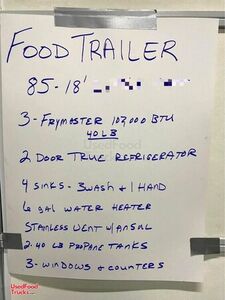 FOOD TRAILER
85-18'
3- FRYMASTER 107,000 BTU
40LB
2 DOOR TRUE REFRIGERATOR
4 SINKS - 3WASH & 1 HAND
6 gal WATER HEATER
STAINLESS VENT W/ANSUL
2-40 LB PROPANE TANKS
3- WINDOWS & COUNTERS
UsedFood
UsedFood
Trucks